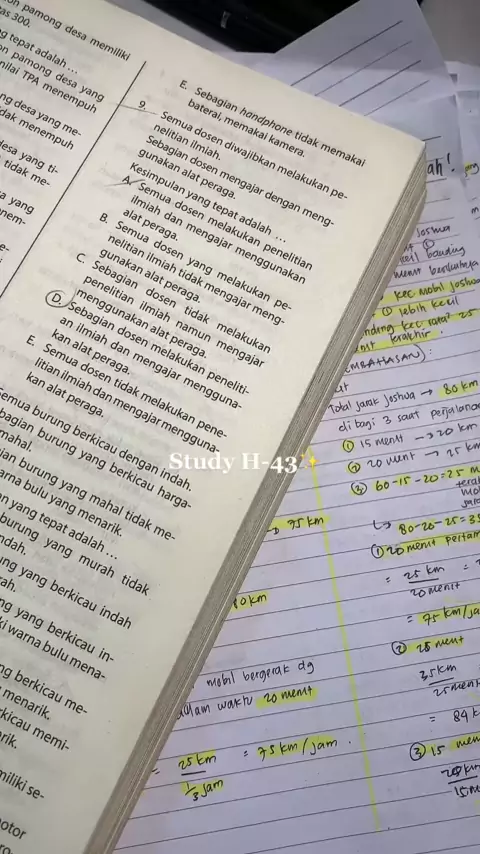 pamong desa memiliki
as 300.
tepat adalah ...
pamong desa yang
nilai TPA menempuh
desa yang me-
dak menempuh
desa yang ti-
tidak me-
yang
nem-
E. Sebagian handphone tidak memakai
baterai, memakai kamera.
9. Semua dosen diwajibkan melakukan pe-
nelitian ilmiah.
Sebagian dosen mengajar dengan meng-
gunakan alat peraga.
Kesimpulan yang tepat adalah ...
A. Semua dosen melakukan penelitian
ilmiah dan mengajar menggunakan
alat peraga.
B. Semua dosen yang melakukan pe-
nelitian ilmiah tidak mengajar meng-
gunakan alat peraga.
C. Sebagian dosen tidak melakukan
penelitian ilmiah namun mengajar
menggunakan alat peraga.
D. Sebagian dosen melakukan peneliti-
an ilmiah dan mengajar mengguna-
kan alat peraga.
E. Semua dosen tidak melakukan pene-
litian ilmiah dan mengajar mengguna-
kan alat peraga.
emua burung berkicau dengan indah.
bagian burung yang berkicau harga-
mahal.
ian burung yang mahal tidak me-
arna bulu yang menarik.
yang tepat adalah ...
burung yang murah tidak
ndah.
ng yang berkicau indah
rah.
ng yang berkicau in-
ki warna bulu mena-
ng berkicau me-
menarik.
rkicau memi-
rik.
miliki se-
otor
Study H-43✨
ah!
Joshua
kec mobil Joshua
① lebih kecil
kec rata² 25
terakhir
Total jarak Joshua → 80 km
di bagi 3 saat perjalanan
① 15 menit → 20 km
② 20 menit → 25 km
③ 60-15-20 = 25 m
→ 75 km
↳ 80-20-25 = 35
① 20 menit pertam
= 25 km
20 menit
= 75 km/ja
② 25 menit
35 km
25 menit
= 84 k
③ 15 men
20 km
15 m
mobil bergerak dg
dalam waktu 20 menit
= 25 km = 75 km/jam.
1/3 jam